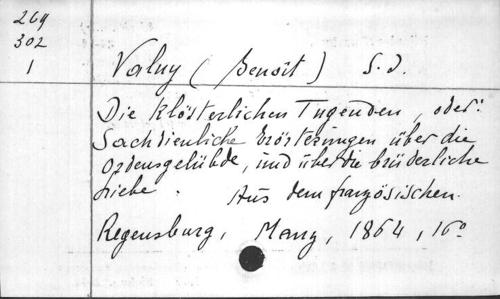 269
302
1
Valuy (Benoît) S. J.
Die Klösterlichen Tugenden, oder:
Sachdienliche Erörterungen über die
Ordensgelübde, und über die brüderliche
Liebe. Aus dem französischen.
Regensburg, Manz, 1864, 16º